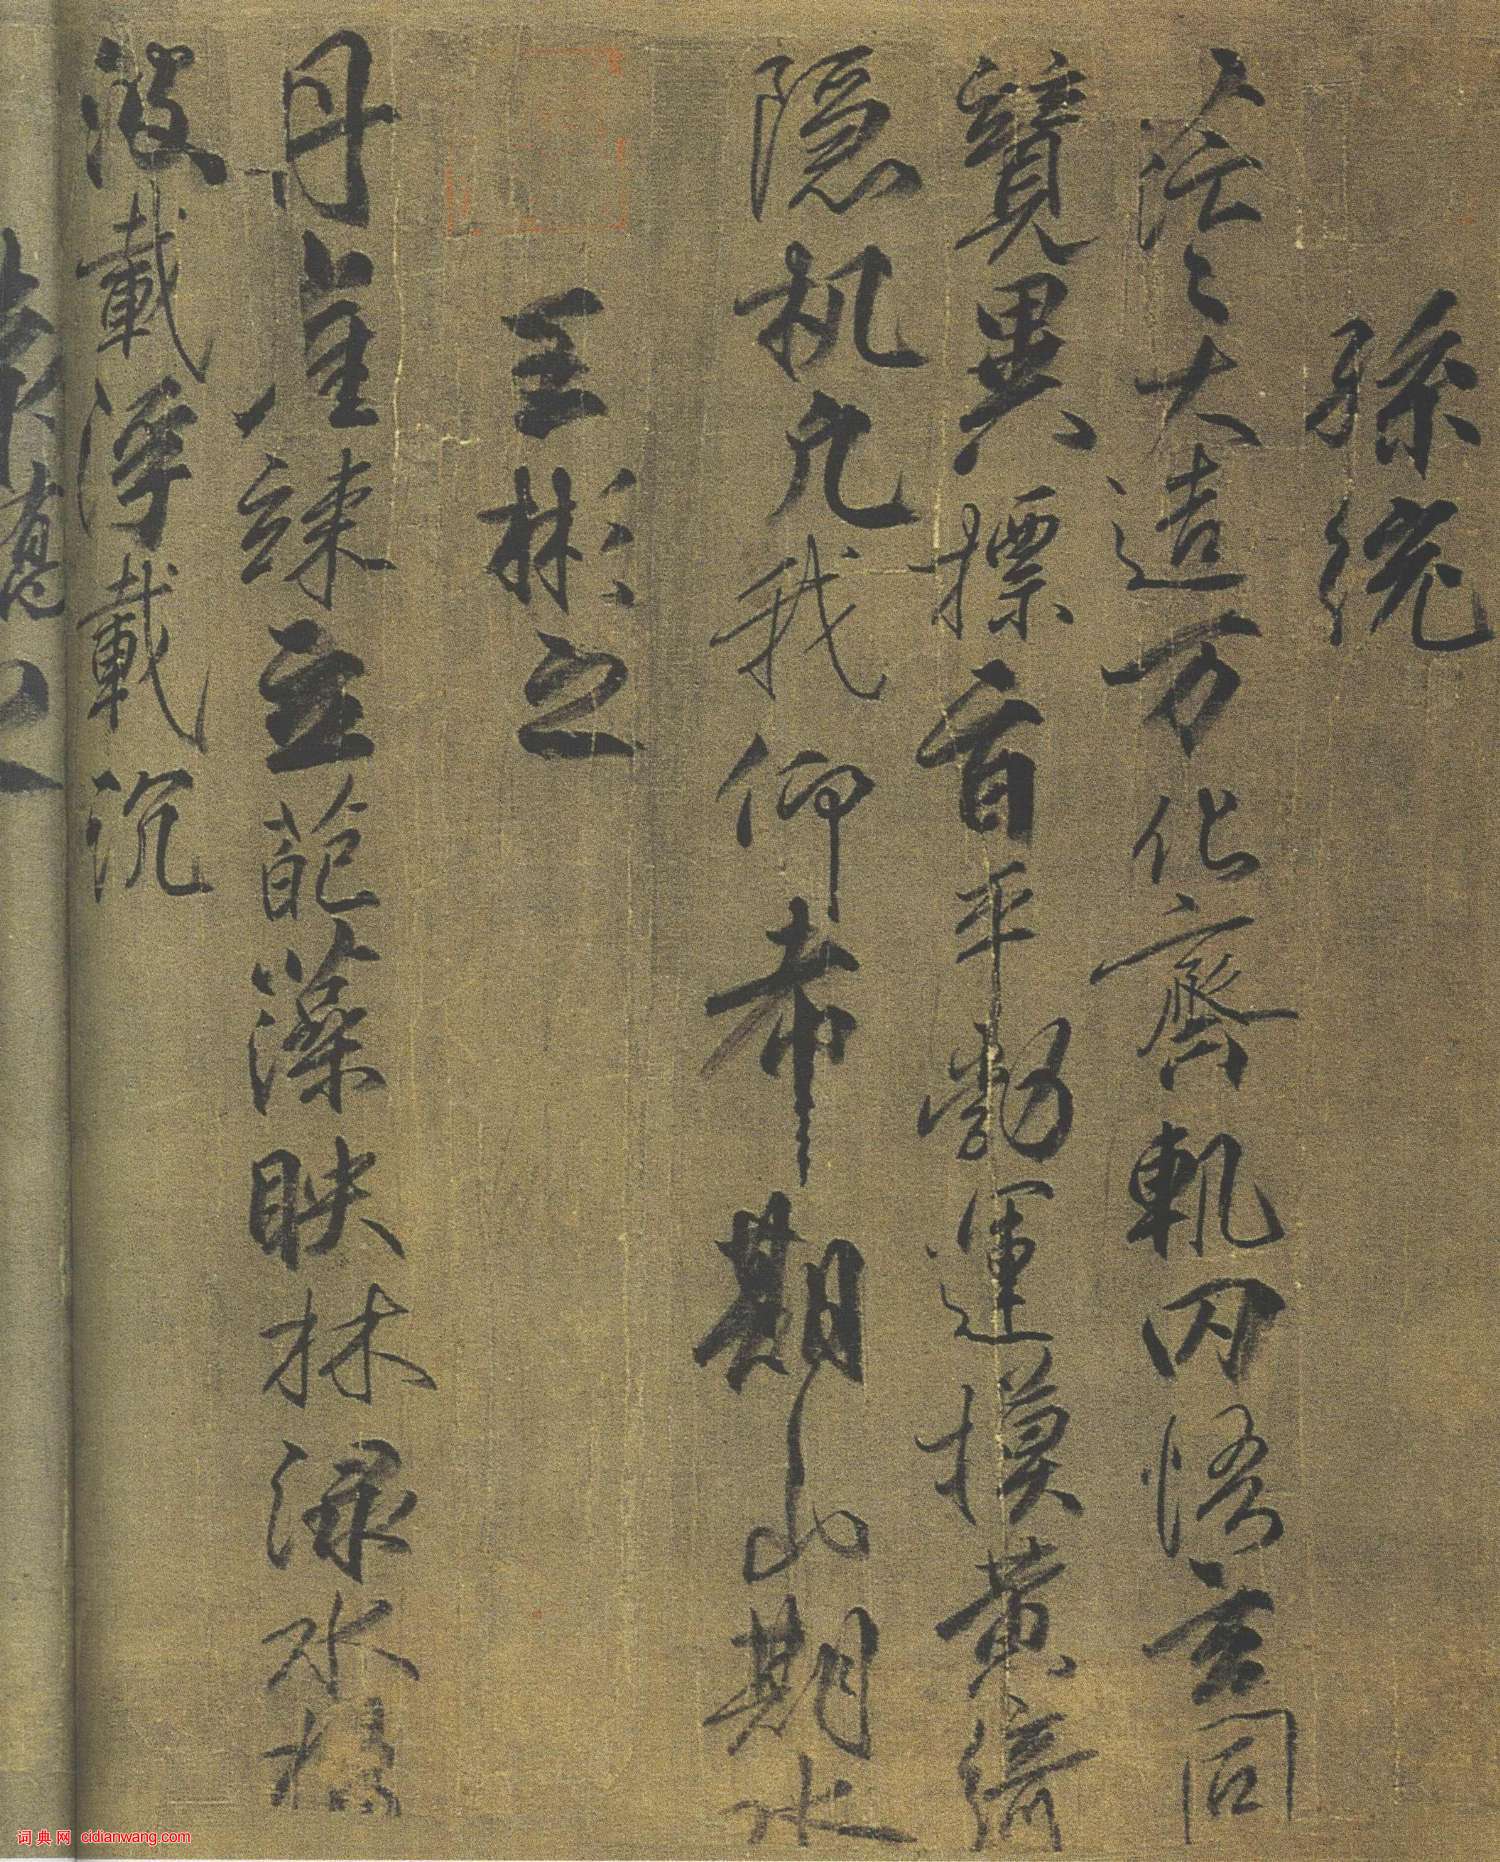 孫統
茫々大造万化齊軌罔悟玄同
競異摽旨平勃運模黃綺
隱机凡我仰希期山期水
王彬之
丹崖竦立葩藻映林淥水揚
波載浮載沉
词典网 cidianwang.com